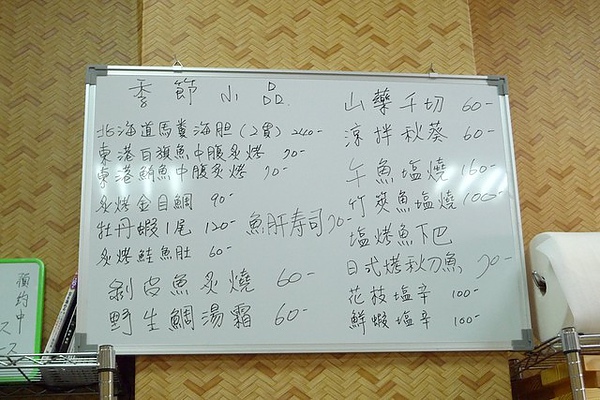 季節小品
北海道馬糞海胆(2貫) 240-
東港百旗魚中腹炙烤 70-
東港鮪魚中腹炙烤 70-
炙烤金目鯛 90-
牡丹蝦1尾 120-
炙烤鮭魚肚 60-
魚肝寿司 70-
剝皮魚炙燒 60-
野生鯛湯霜 60-
山藥千切 60-
涼拌秋葵 60-
午魚塩燒 160-
竹筴魚塩燒 100-
塩烤魚下巴
日式烤秋刀魚 70-
花枝塩辛 100-
鮮蝦塩辛 100-
預約中